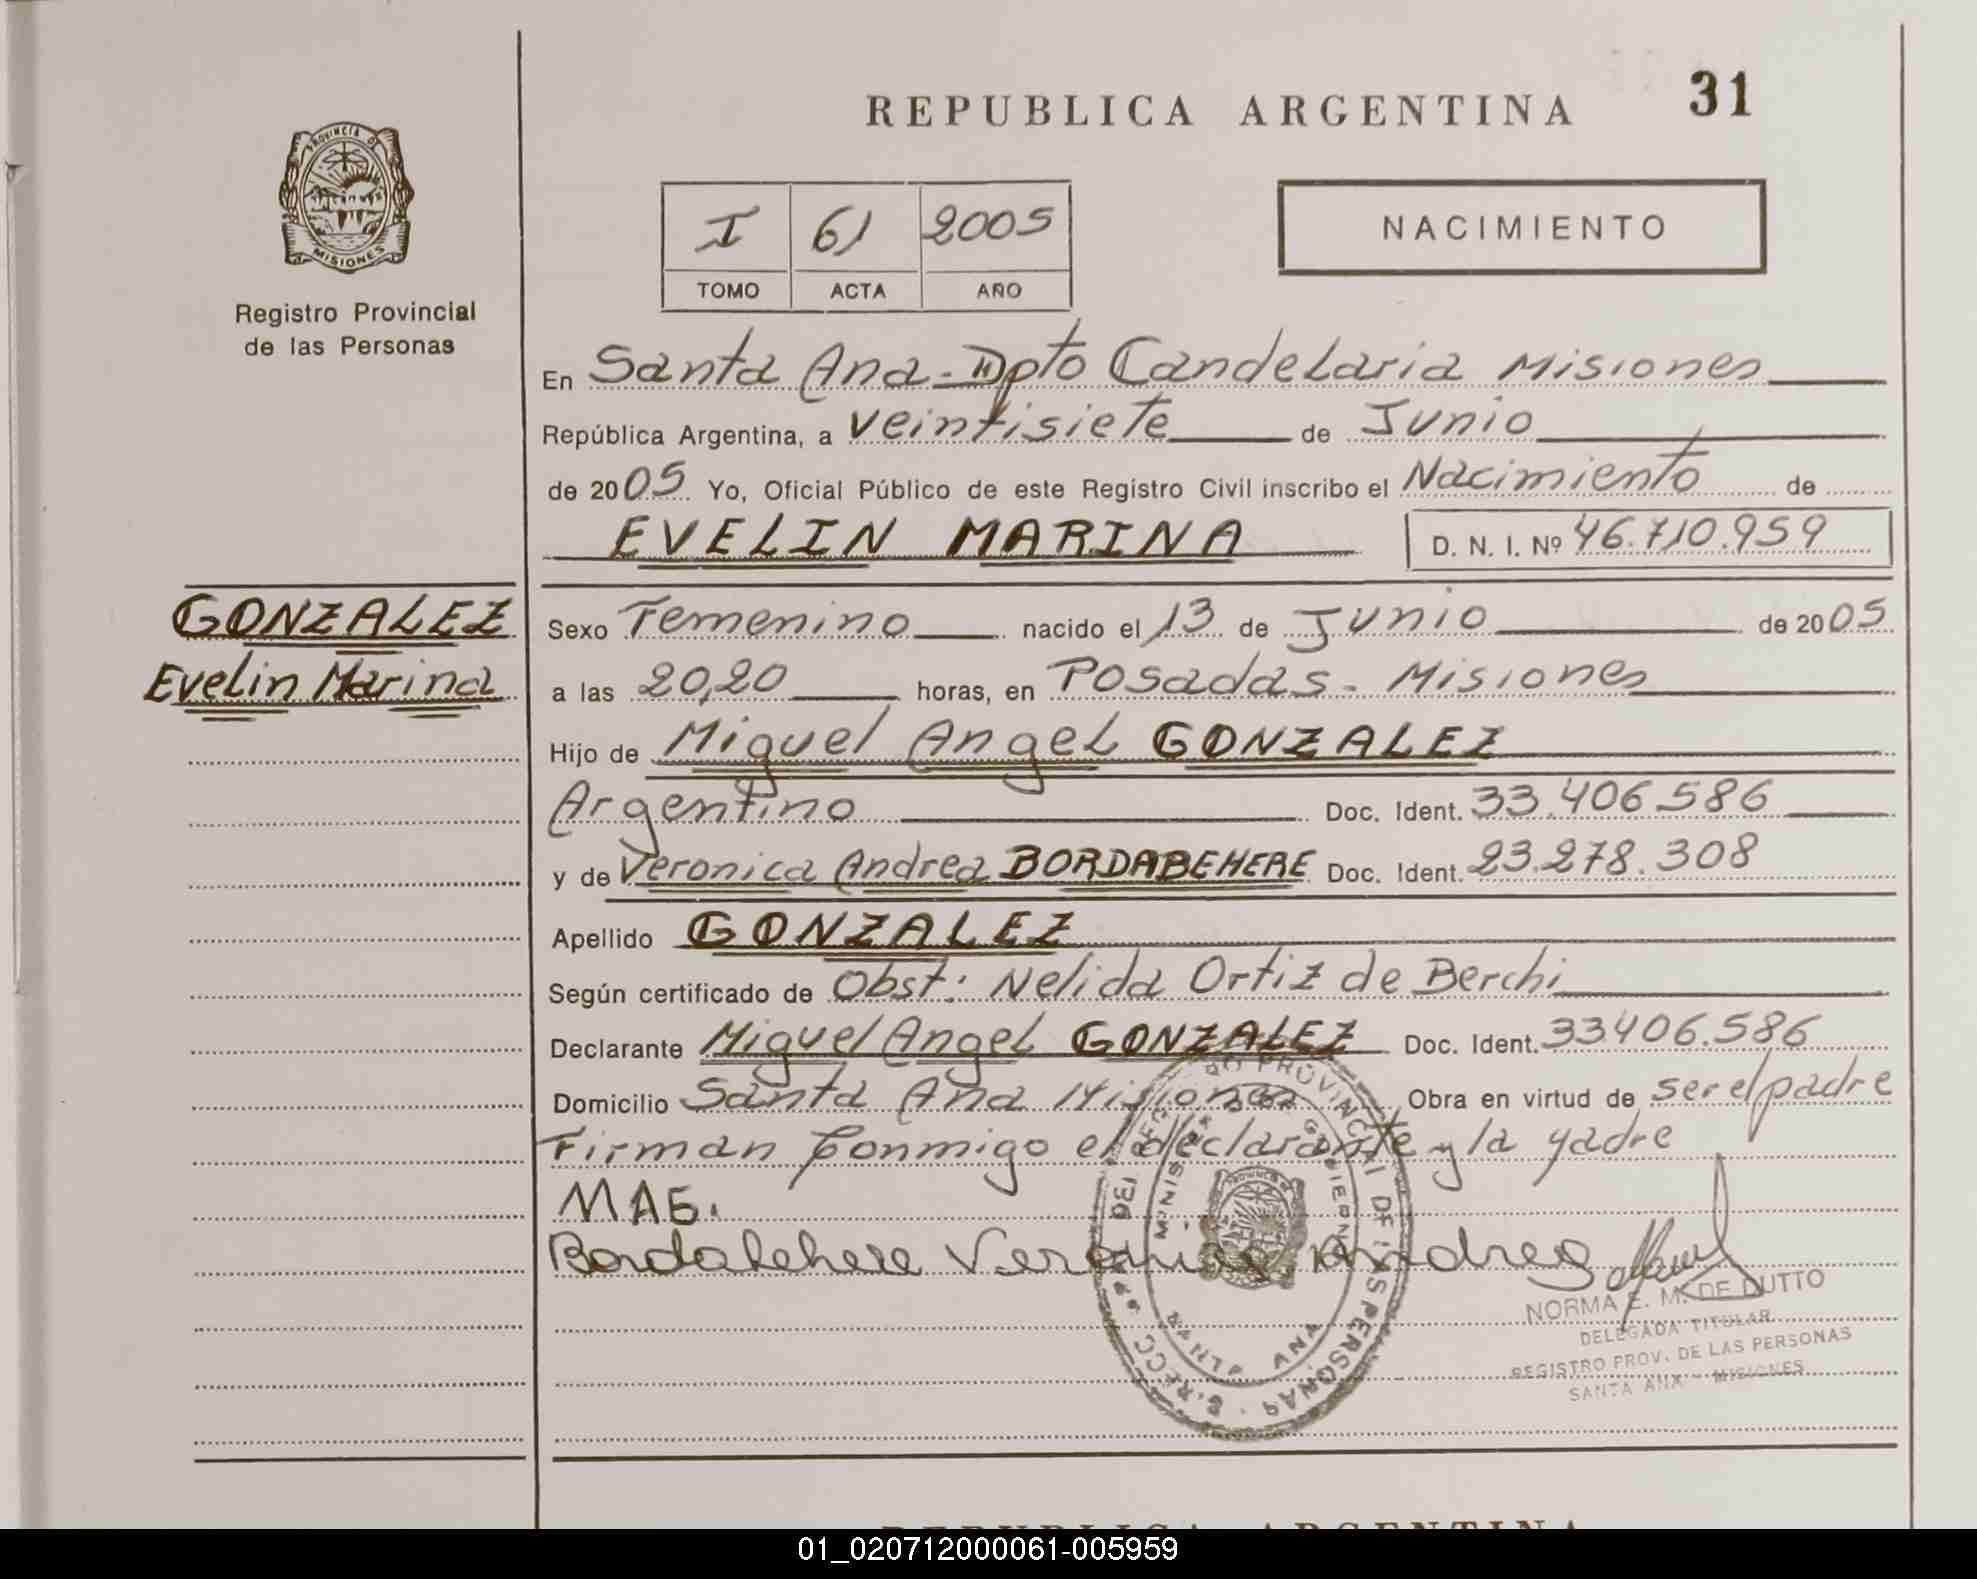 REPUBLICA ARGENTINA
31
PROVINCIA DE
MISIONES
Registro Provincial
de las Personas
I 61 2005
TOMO ACTA AÑO
NACIMIENTO
En Santa Ana - Dpto Candelaria Misiones
República Argentina, a veintisiete de Junio
de 2005 Yo, Oficial Público de este Registro Civil inscribo el Nacimiento de
EVELIN MARINA D. N. I. Nº 46.710.959
GONZALEZ
Evelin Marina
Sexo Femenino nacido el 13 de Junio de 2005
a las 20,20 horas, en Posadas - Misiones
Hijo de Miguel Angel GONZALEZ
Argentino Doc. Ident. 33.406.586
y de Veronica Andrea BORDABEHERE Doc. Ident. 23.278.308
Apellido GONZALEZ
Según certificado de Obst: Nelida Ortiz de Berchi
Declarante Miguel Angel GONZALEZ Doc. Ident. 33406.586
Domicilio Santa Ana Misiones Obra en virtud de ser el padre
Firman Conmigo el declarante y la yadre
MAG.
Bordabehere Veronica Andrea
NORMA E. M. DE DUTTO
DELEGADA TITULAR
REGISTRO PROV. DE LAS PERSONAS
SANTA ANA - MISIONES
REPUBLICA ARGENTINA
01_020712000061-005959